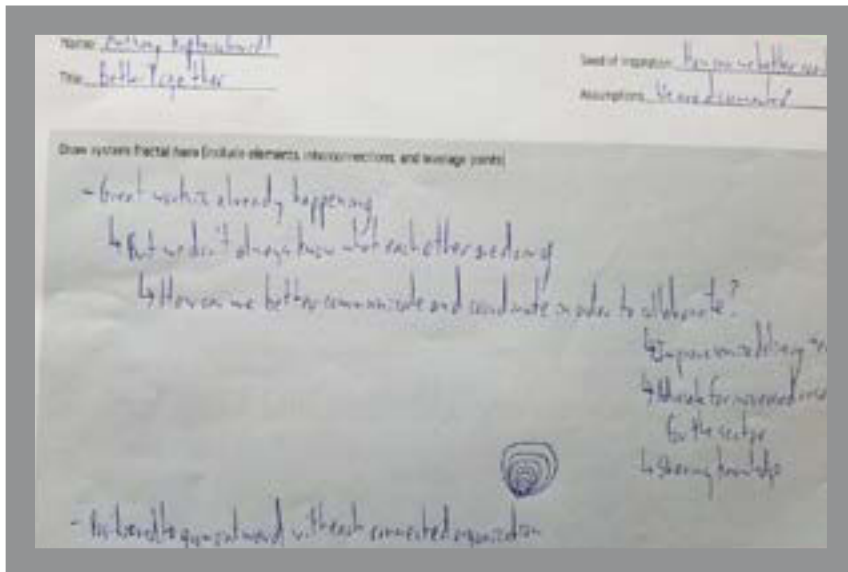 Name: Anthony
Title: Better Together
Seed of inspiration: How can we better
Assumptions: We are disconnected
Draw system fractal here (include elements, interconnections, and leverage points)
- Great work is already happening
↳ But we don't always know what each other are doing
↳ How can we better communicate and coordinate in order to collaborate?
↳ Improve service delivery
↳ Advocate for increased
for the sector
↳ Sharing knowledge
- outward with each connected organization